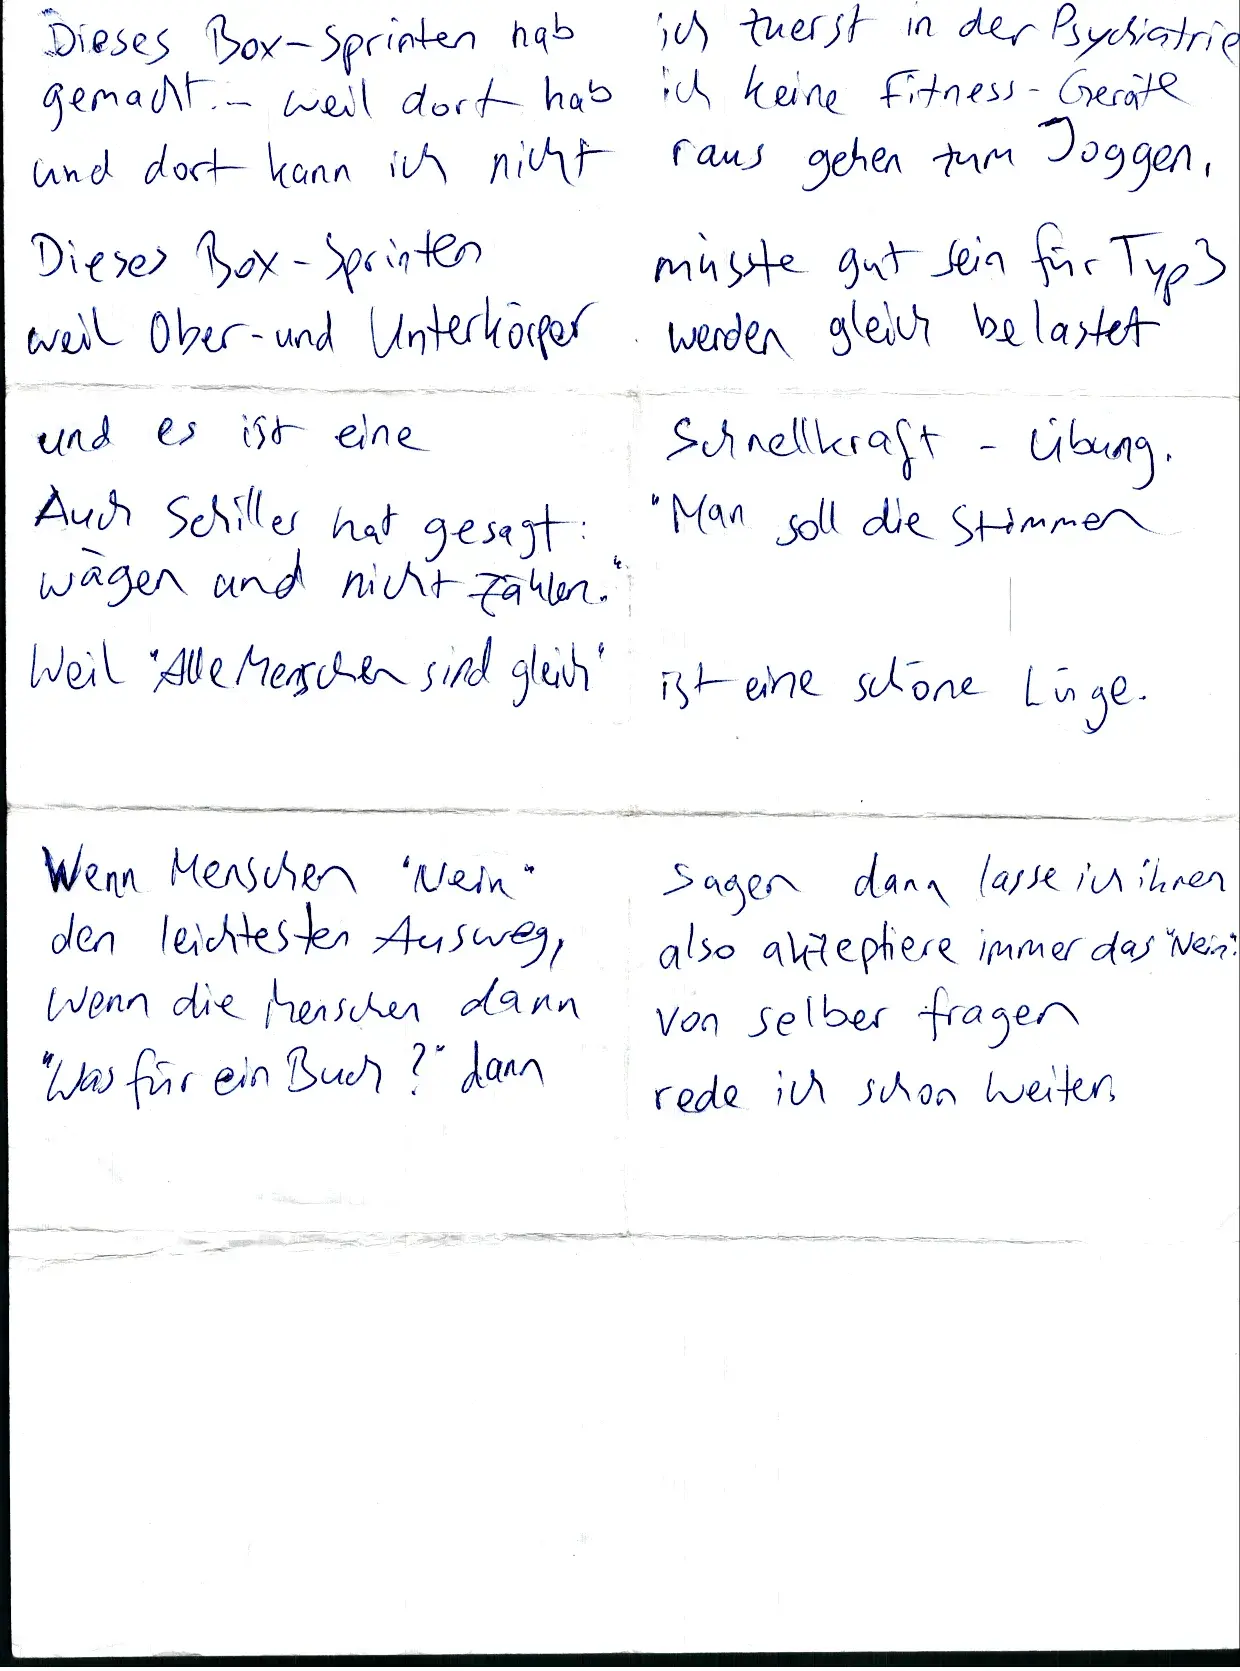 Dieses Box-Sprinten hab ich zuerst in der Psychiatrie
gemacht. - weil dort hab ich keine Fitness-Geräte
und dort kann ich nicht raus gehen zum Joggen.
Dieses Box-Sprinten müsste gut sein für Typ3
weil Ober-und Unterkörper werden gleich belastet
und es ist eine Schnellkraft - Übung.
Auch Schiller hat gesagt: "Man soll die Stimmen
wägen und nicht zählen."
Weil "Alle Menschen sind gleich" ist eine schöne Lüge.
Wenn Menschen "Nein" sagen dann lasse ich ihnen
den leichtesten Ausweg, also akzeptiere immer das "Nein".
Wenn die Menschen dann von selber fragen
"Was für ein Buch?" dann rede ich schon weiter.